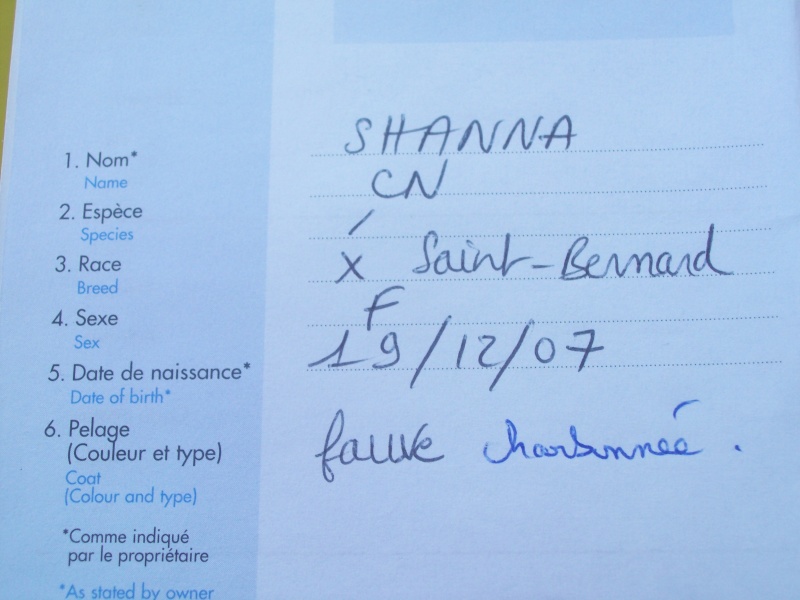 1. Nom* SHANNA
Name
CN
2. Espèce
Species
3. Race X Saint-Bernard
Breed
4. Sexe F
Sex
5. Date de naissance* 19/12/07
Date of birth*
6. Pelage
(Couleur et type) fauve charbonneé.
Coat
(Colour and type)
*Comme indiqué
par le propriétaire
*As stated by owner